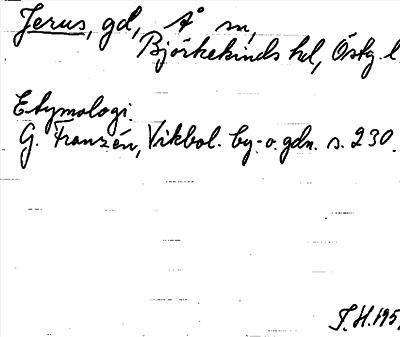 Jerus, gd, Å sn,
Björkekinds hd, Östg. l
Etymologi.
G. Franzén, Vikbol. by- o. gdn. s. 230.
T.H. 195